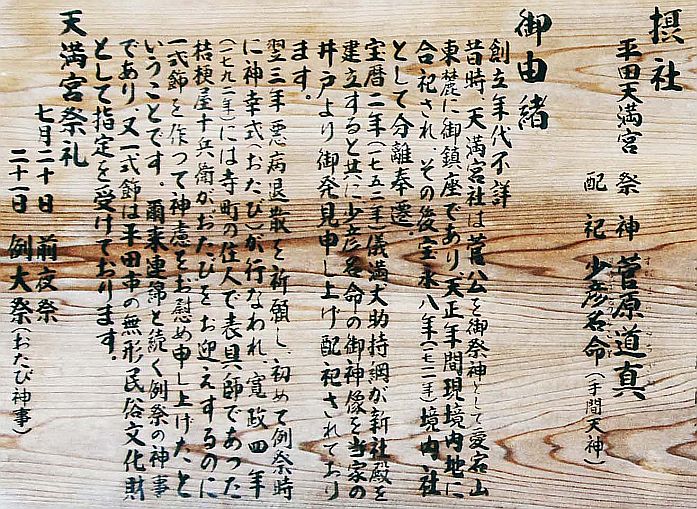 摂社
平田天満宮 祭神 菅原道真
配祀 少彦名命(手間天神)
御由緒
創立年代不詳
昔時、天満宮社は菅公を御祭神として愛宕山
東麓に御鎮座であり天正年間現境内地に
合祀され、その後宝永八年(一七一一年)境内社
として分離奉遷
宝暦二年(一七五二年)儀満丈助持綱が新社殿を
建立すると共に少彦名命の御神像を当家の
井戸より御発見申し上げ配祀されており
ます。
翌三年悪病退散を祈願し、初めて例祭時
に神幸式(おたび)が行なわれ、寛政四年
(一七九二年)には寺町の住人で表具師であった
桔梗屋十兵衛がおたびをお迎えするのに
一式飾を作つて神慮をお慰め申し上げたと
いうことです。爾来連綿と続く例祭の神事
であり又一式飾は平田市の無形民俗文化財
として指定を受けております。
天満宮祭礼
七月二十日 前夜祭
二十一日 例大祭(おたび神事)